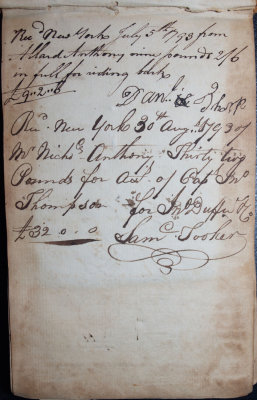 Rec'd New York July 5th 1793 from
Allard Anthony nine pounds 2/6
in full for riding
£9..2..6
Danl Thorp
Recd. New York 30th Augt. 1793 of
Mr Nichs. Anthony Thirty two
Pounds for Acct. of Capt. Jno
Thompson for Jno Duffie
£32..0..0
Saml. Tooker